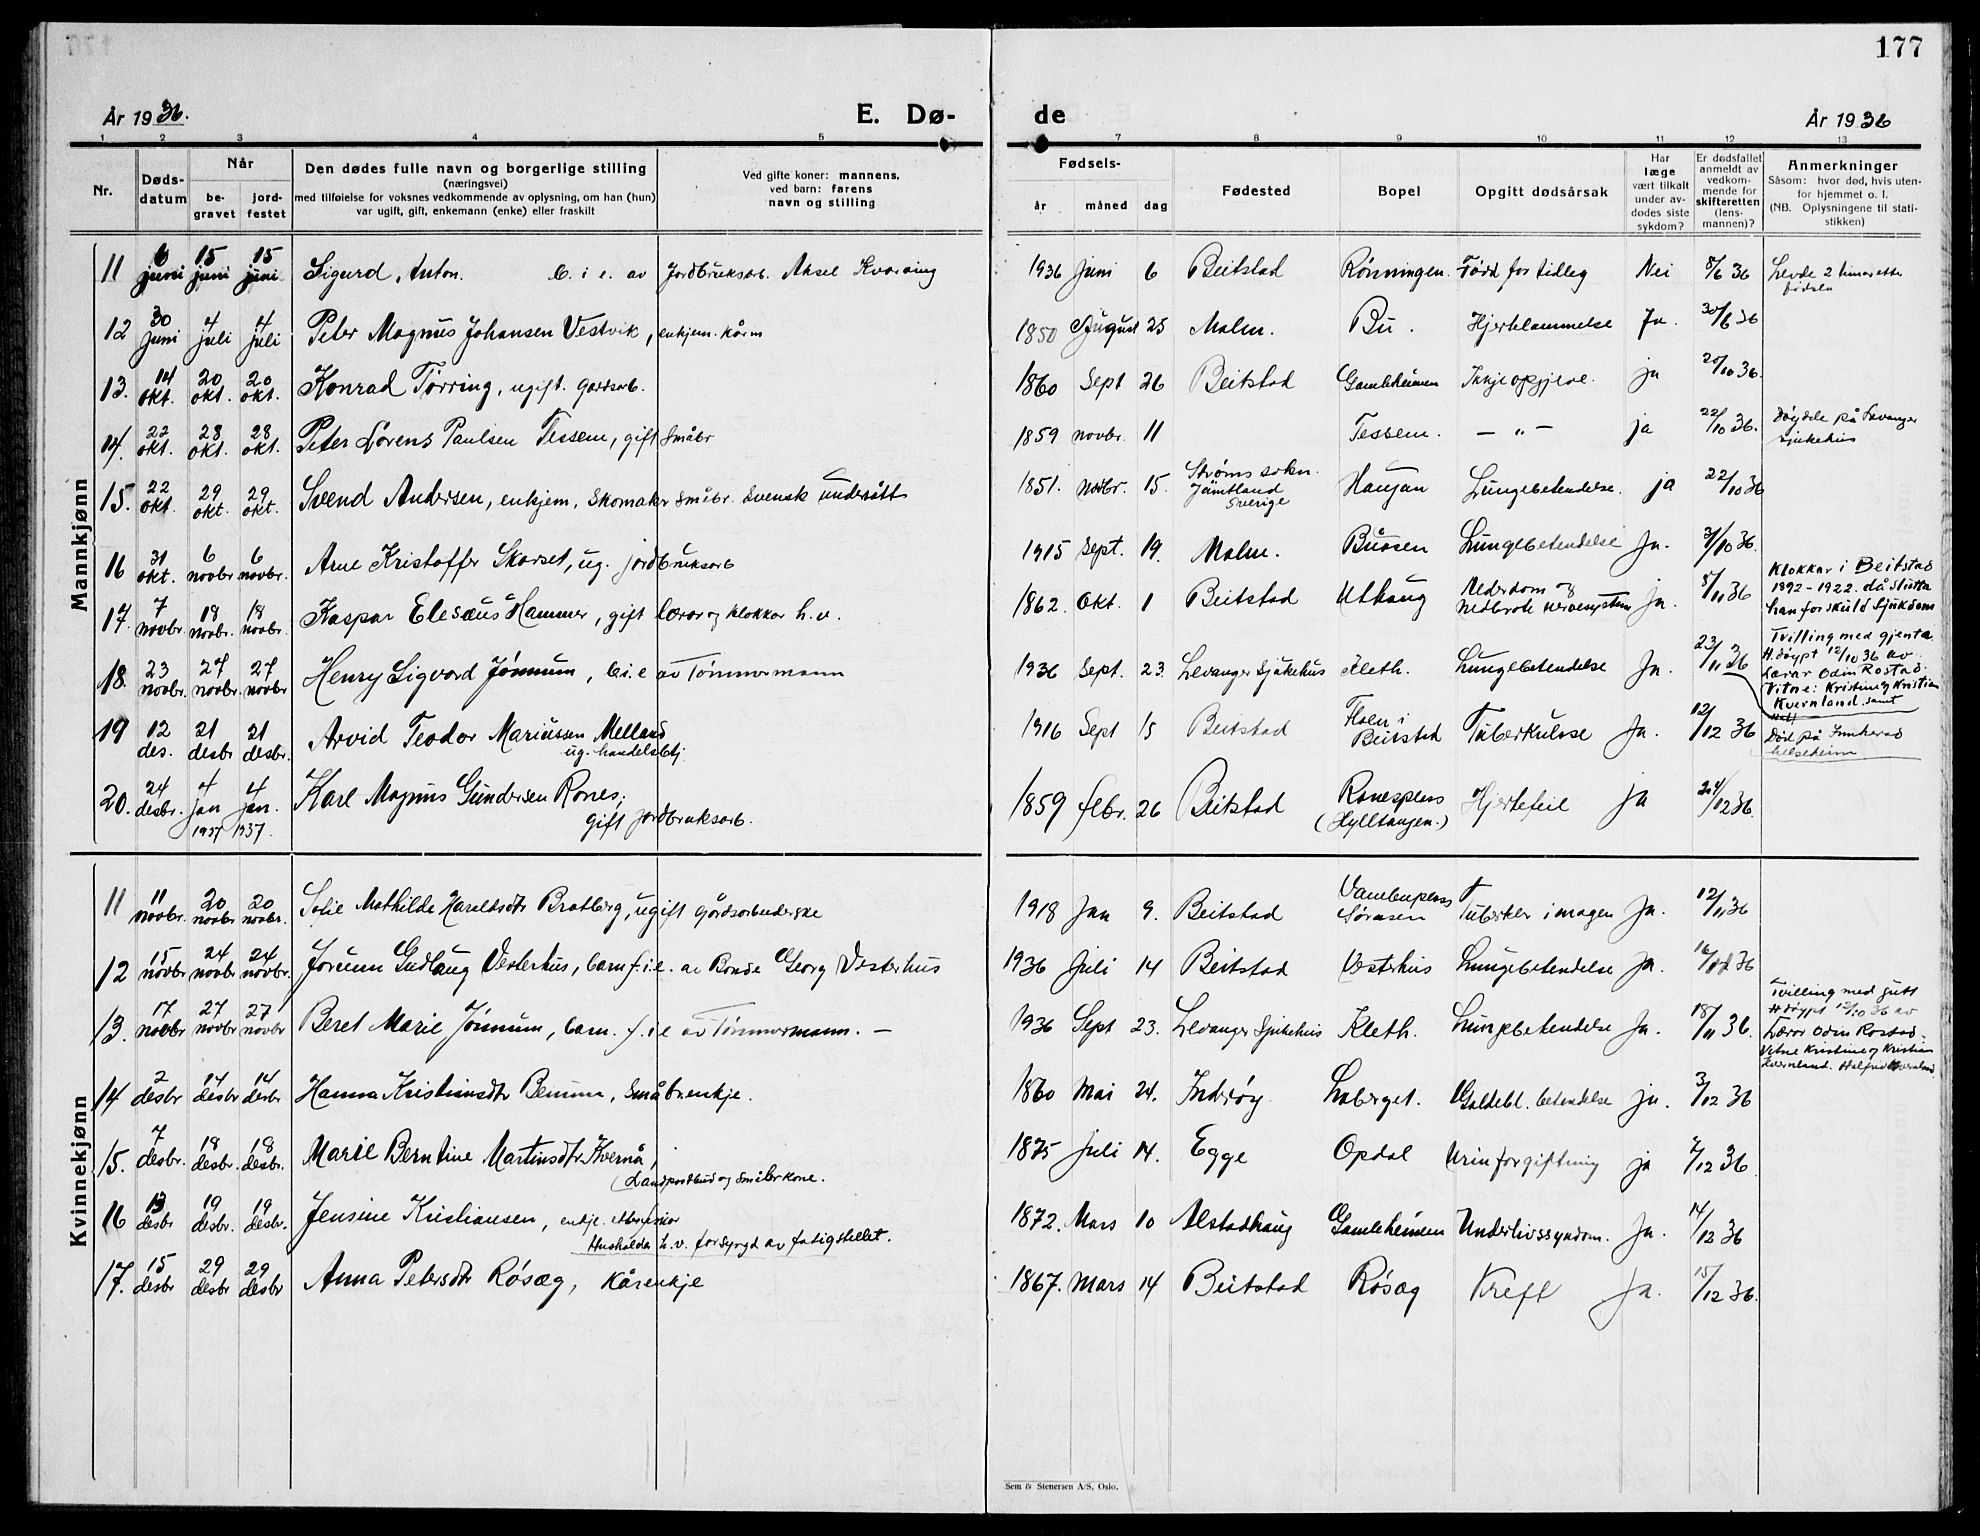 177
År 1936. E. Dø- de År 1936
1 2 3 4 5 7 8 9 10 11 12 13
Nr. Døds-datum Når be-gravet jord-festet Den dødes fulle navn og borgerlige stilling (næringsvei) med tilføielse for voksnes vedkommende av oplysning, om han (hun) var ugift, gift, enkemann (enke) eller fraskilt Ved gifte koner: mannens, ved barn: farens navn og stilling Fødsels- år måned dag Fødested Bopel Opgitt dødsårsak Har læge vært tilkalt under av-dødes siste sykdom? Er dødsfallet anmeldt av vedkom-mende for skifteretten (lens-mannen)? Anmerkninger Såsom: hvor død, hvis uten-for hjemmet o. l. (NB. Oplysningene til stati-stikken)
Mannkjønn
11 6 juni 15 juni 15 juni Sigurd Anton. b. i e. av Jordbruksarb. Aksel Kvarving 1936 Juni 6 Beitstad Rönningen. Född for tidleg Nei 8/6 36 Levde 2 timar etter födselen
12 30 juni 4 juli 4 juli Peter Magnus Johansen Vestvik, enkjem. kårm 1850 August 25 Malm. Bu. Hjertelammelse Ja. 30/6 36
13. 14 okt. 20 okt. 20 okt. Konrad Tørring, ugift. gardsarb. 1860 Sept 26 Beitstad Gamleheimen Ikkje opgjeve. ja 20/10 36.
14. 22 okt. 28 okt. 28 okt. Peter Lorens Paulsen Tessem, gift småbr 1859 novbr. 11 Tessem. — „ — ja 22/10 36. döyde på Levanger sjukehus
15. 22 okt. 29 okt. 29 okt. Svend Andersen, enkjem, skomaker småbr. Svensk undersått 1851. Novbr. 15. Ströms sokn. Jämtland Sverige Haugan Lungebetendelse. ja 22/10 36
16 31 okt. 6 novbr 6 novbr. Arne Kristoffer Skarset, ug. jordbruksarb 1915 Sept. 19. Malm. Buåsen Lungebetendelse Ja. 31/10 36.
17. 7 novbr. 18 novbr. 18 novbr. Kaspar Elesæus Hammer, gift lærar og klokkar h. v. 1862. Okt. 1 Beitstad Uthaug Alderdom og nedbrote nervesystem Ja. 8/11 36 Klokkar i Beitstad 1892-1922. då slutta han for skuld Sjukdom
18. 23 novbr. 27 novbr. 27 novbr Henry Sigvard Jönnum, b. i. e av Tömmermann 1936 Sept. 23. Levanger Sjukehus Kleth. Lungebetendelse Ja. 23/11 36 Tvilling med gjenta. H.döypt 12/10 36 av Lærar Odin Rostad. Vitne: Kristine og Kristian Kvernland. samt
19 12 des. 21 desbr 21 desbr. Arvid Teodor Mariusen Melland ug. handelsbetj. 1916 Sept 15 Beitstad Floen i Beitstad Tuberkulose Ja. 12/12 36 Död på Innherad helseheim
20. 24 desbr. 4 jan 1937 4 jan. 1937. Karl Magnus Gundersen Rones, gift jordbruksarb. 1859 febr. 26 Beitstad Ronesplass (Hylltangen.) Hjertefeil ja 24/12 36.
Kvinnekjønn
11 11 novbr. 20 novbr 20 novbr. Sofie Mathilde Haraldsdtr Bratberg, ugift gårdsarbeiderske 1918 Jan 9. Beitstad Tuberkler i magen Ja. 12/11 36
12 15 novbr 24 novbr 24 novbr. Jorunn Gudlaug Vesterhus, barn f. i. e. av Bonde Georg Vesterhus 1936 Juli 14 Beitstad Vesterhus Lungebetendelse Ja. 16/11 36
13. 17 novbr 27 novbr 27 novbr Beret Marie Jönnum, barn. f. i e av Tömmermann. — 1936 Sept 23. Levanger Sjukehus Kleth. Lungebetendelse Ja. 18/11 36. Tvilling med gutt H.döypt 12/10 36 av Lærar Odin Rostad. Vitne Kristine og Kristian Kvernland. Halfrid Kvernland.
14 2 desbr 14 desbr 14 desbr Hanna Kristiansdtr Benum, småbr.enkje. 1860 Mai 24. Inderöy Laberget. Galdebl. betendelse ja. 3/12 36
15. 7 desbr. 18 desbr. 18 desbr. Marie Berntine Martinsdtr Kvernå, (Landpostbud og småbr.kone. 1875 Juli 14. Egge Opdal Urinforgiftning ja 7/12 36
16 13 desbr 19 desbr. 19 desbr. Jensine Kristiansen, enkje. etter Husholder h. v. forsyrgd av fatigstellet. 1872. Mars 10 Alstadhaug Gamleheimen Underlivssyndom. Ja. 14/12 36
17. 15 desbr 29 desbr 29 desbr Anna Petersdtr Rösæg, kårenkje 1867. Mars 14 Beitstad Rösæg Kreft Ja. 15/12 36.
Sem & Stenersen A/S, Oslo.